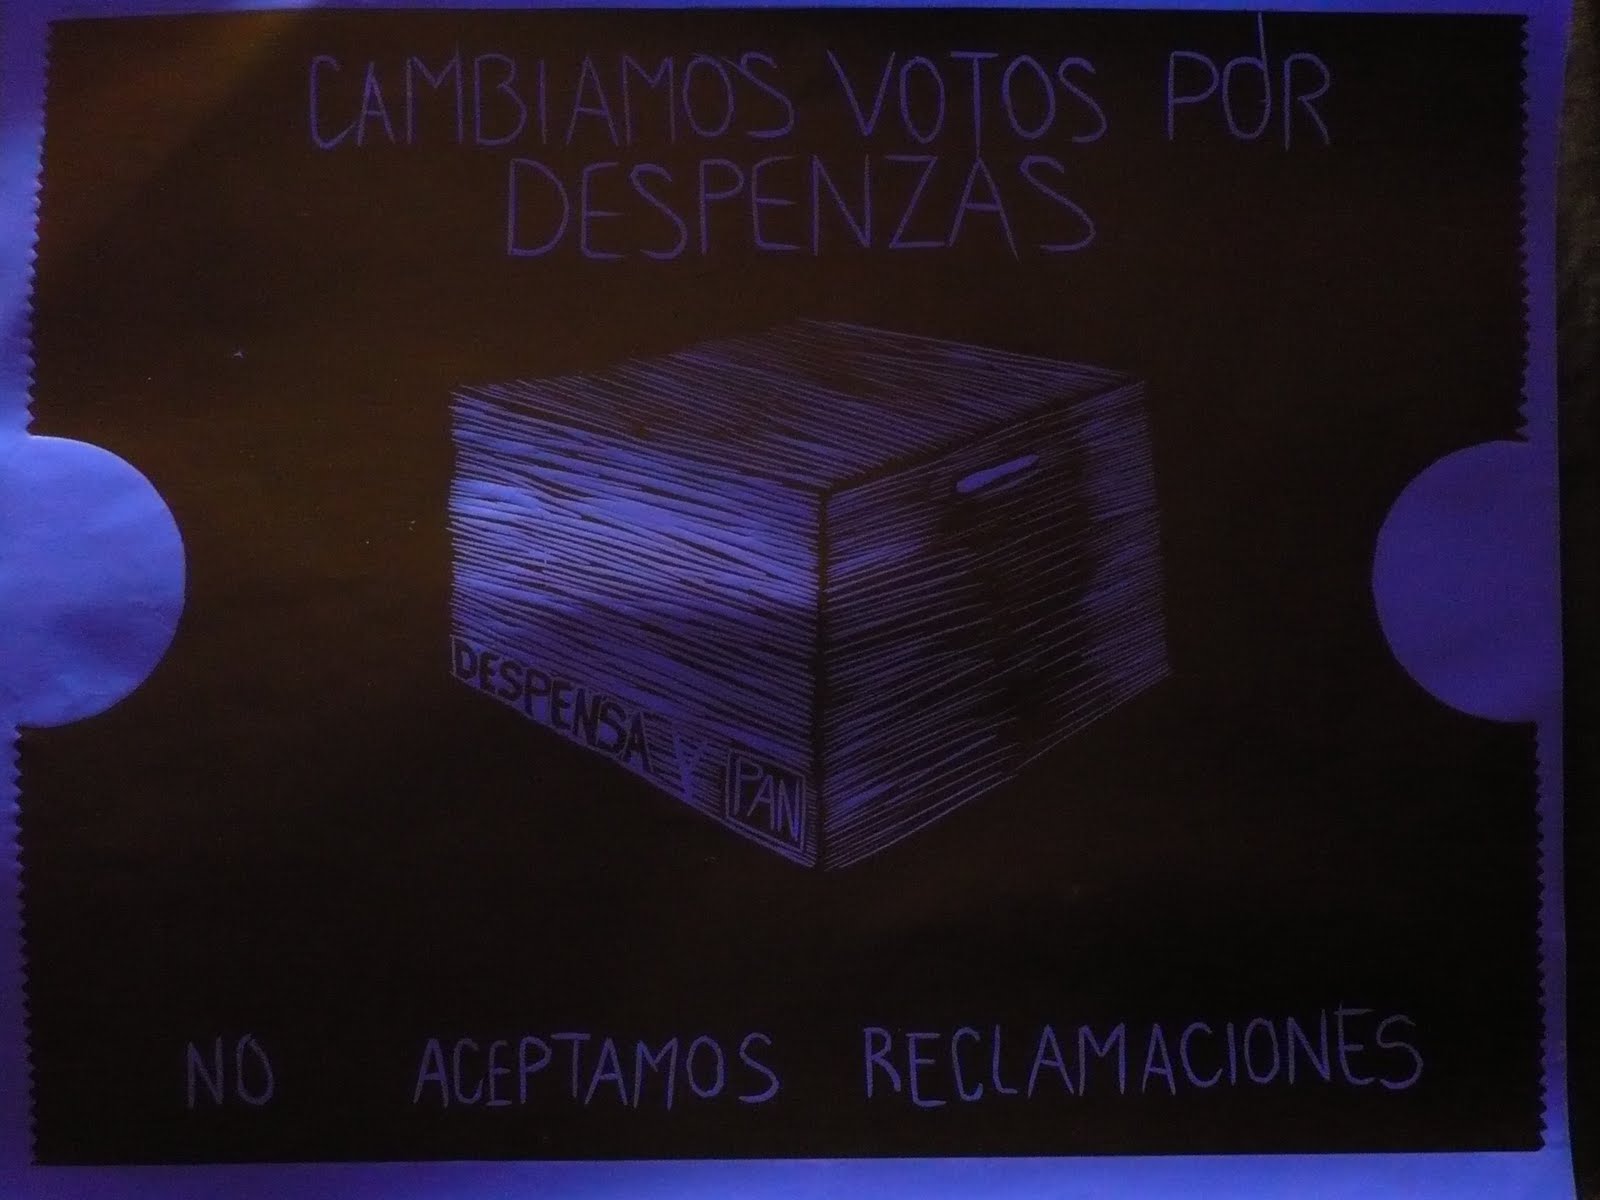 CAMBIAMOS VOTOS POR
DESPENZAS
DESPENSA Y PAN
NO ACEPTAMOS RECLAMACIONES